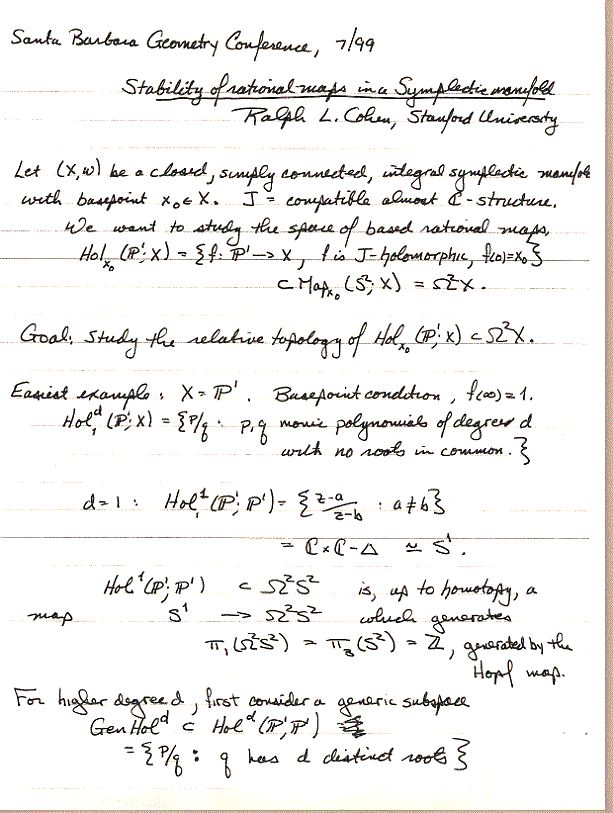 Santa Barbara Geometry Conference, 7/99
Stability of rational maps in a Symplectic manifold
Ralph L. Cohen, Stanford University
Let (X,ω) be a closed, simply connected, integral symplectic manifold
with basepoint x₀ ∈ X. J = compatible almost ℂ-structure.
We want to study the space of based rational maps,
Hol_{x₀}(ℙ¹; X) = {f: ℙ¹ → X, f is J-holomorphic, f(∞)=x₀}
⊂ Map_{x₀}(S²; X) = Ω²X.
Goal: Study the relative topology of Hol_{x₀}(ℙ¹; X) ⊂ Ω²X.
Easiest example: X = ℙ¹. Basepoint condition, f(∞) = 1.
Hol₁ᵈ(ℙ¹; X) = {p/q : p, q monic polynomials of degree d
with no roots in common.}
d = 1 : Hol₁¹(ℙ¹; ℙ¹) = {z-a/z-b : a ≠ b}
= ℂ×ℂ-Δ ≃ S¹.
Hol¹(ℙ¹; ℙ¹) ⊂ Ω²S² is, up to homotopy, a
map S¹ → Ω²S² which generates
π₁(Ω²S²) = π₃(S²) = ℤ, generated by the
Hopf map.
For higher degree d, first consider a generic subspace
Gen Holᵈ ⊂ Holᵈ(ℙ¹, ℙ¹)
= {p/q : q has d distinct roots}